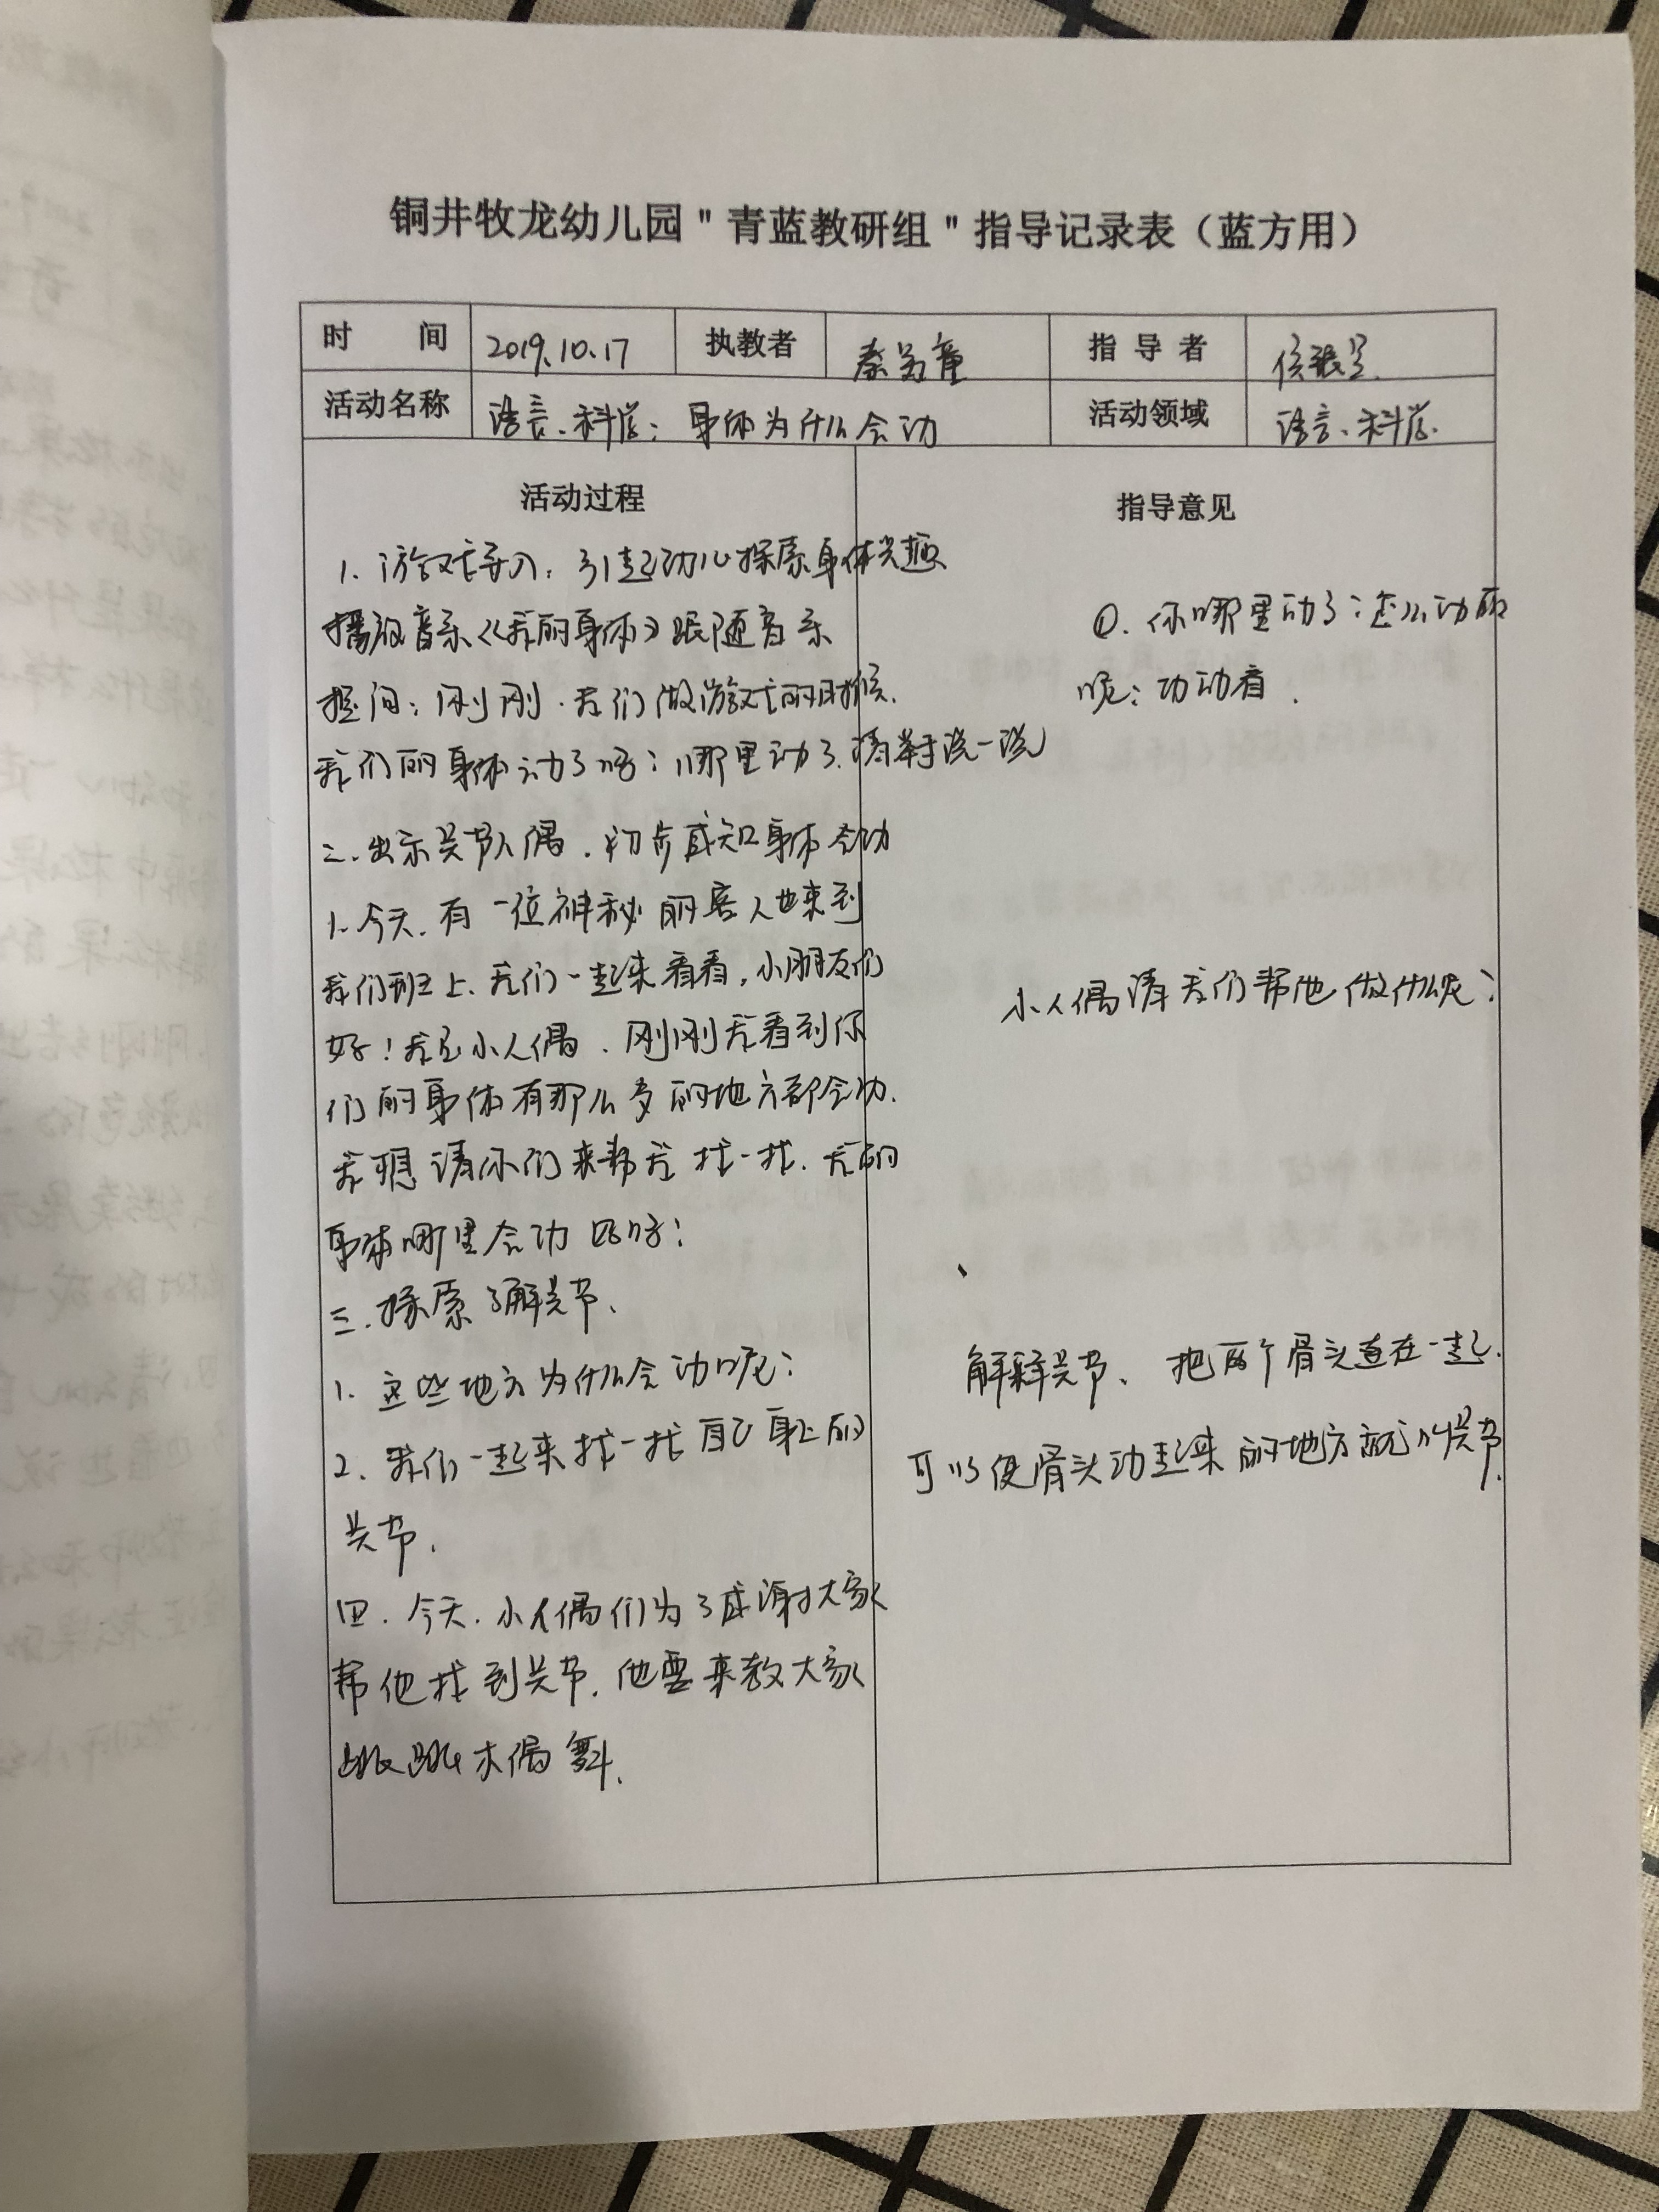 铜井牧龙幼儿园"青蓝教研组"指导记录表（蓝方用）
时 间 2019.10.17 执教者 指导者
活动名称 语言、科学：身体为什么会动 活动领域 语言、科学.
活动过程
1. 游戏导入，引起幼儿探索身体兴趣
播放音乐《我的身体》跟随音乐
提问：刚刚.我们做游戏的时候.
我们的身体动了吗？哪里动了.请举手说一说
二.出示关节人偶.初步感知身体会动
1.今天.有一位神秘的客人也来到
我们班上.我们一起来看看,小朋友们
好！我是小人偶.刚刚我看到你
们的身体有那么多的地方都会动.
我想请你们来帮我找一找.我的
身体哪里会动 吗？
三.探索了解关节.
1. 这些地方为什么会动呢？
2. 我们一起来找一找自己身上的
关节.
四.今天.小人偶们为了感谢大家
帮他找到关节.他要来教大家
跳跳木偶舞.
指导意见
①.你哪里动了？怎么动的
呢？动动看.
小人偶请我们帮他做什么呢？
解释关节、把两个骨头连在一起.
可以使骨头动起来的地方就叫关节.